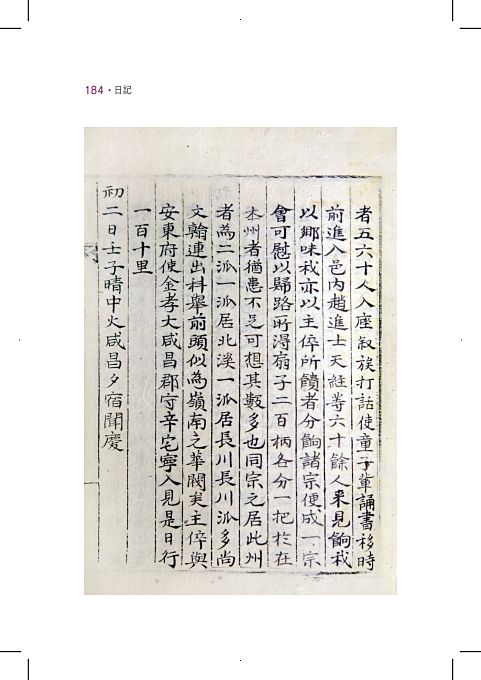 184 · 日記
者五六十人入座叙族打話使童子輩誦書移時
前進入邑内趙進士天経等六十餘人来見餉我
以鄉味我亦以主倅所饋者分餉諸宗便成一宗
會可慰以歸路所淂扇子二百柄各分一把於在
本州者猶患不足可想其數多也同宗之居此州
者為二派一派居北溪一派居長川長川派多尚
文翰連出科舉前頭似為嶺南之華閥矣主倅與
安東府使金孝大咸昌郡守辛宅寧入見是日行
一百十里
初二日壬子晴中火咸昌夕宿聞慶